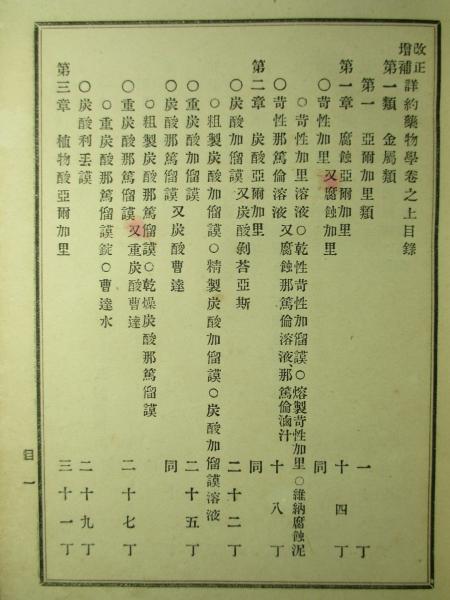 改正增補詳約藥物學卷之上目錄
第一類　金屬類
第一　亞爾加里類　一丁
第一章　腐蝕亞爾加里　十四丁
○苛性加里　又腐蝕加里　同
○苛性加里溶液○乾性苛性加㽞謨○熔製苛性加里○維納腐蝕泥
○苛性那篤倫溶液　又腐蝕那篤倫溶液、那篤倫滷汁　十八丁
第二章　炭酸亞爾加里　同
○炭酸加㽞謨　又炭酸剝苔亞斯　二十二丁
○粗製炭酸加㽞謨○精製炭酸加㽞謨○炭酸加㽞謨溶液
○重炭酸加㽞謨　二十五丁
○炭酸那篤㽞謨　又炭酸曹達　同
○粗製炭酸那篤㽞謨○乾燥炭酸那篤㽞謨
○重炭酸那篤㽞謨　又重炭酸曹達　二十七丁
○重炭酸那篤㽞謨錠○曹達水
○炭酸利丟謨　二十九丁
第三章　植物酸亞爾加里　三十一丁
目一